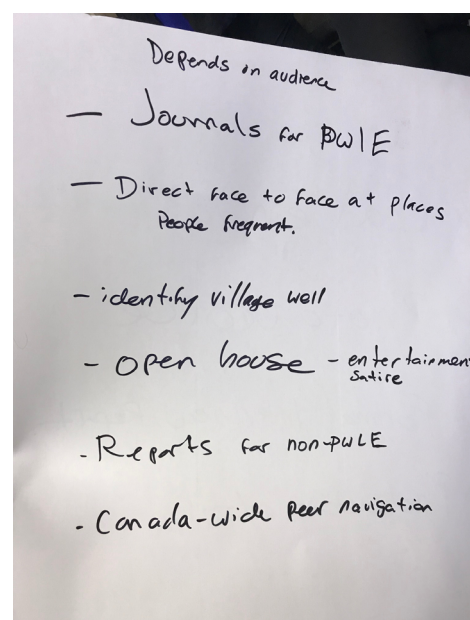 Depends on audience
— Journals for PWLE
— Direct face to face at places
People frequent.
- identify village well
- open house - entertainmen
satire
- Reports for non-PWLE
- Canada-wide peer navigation